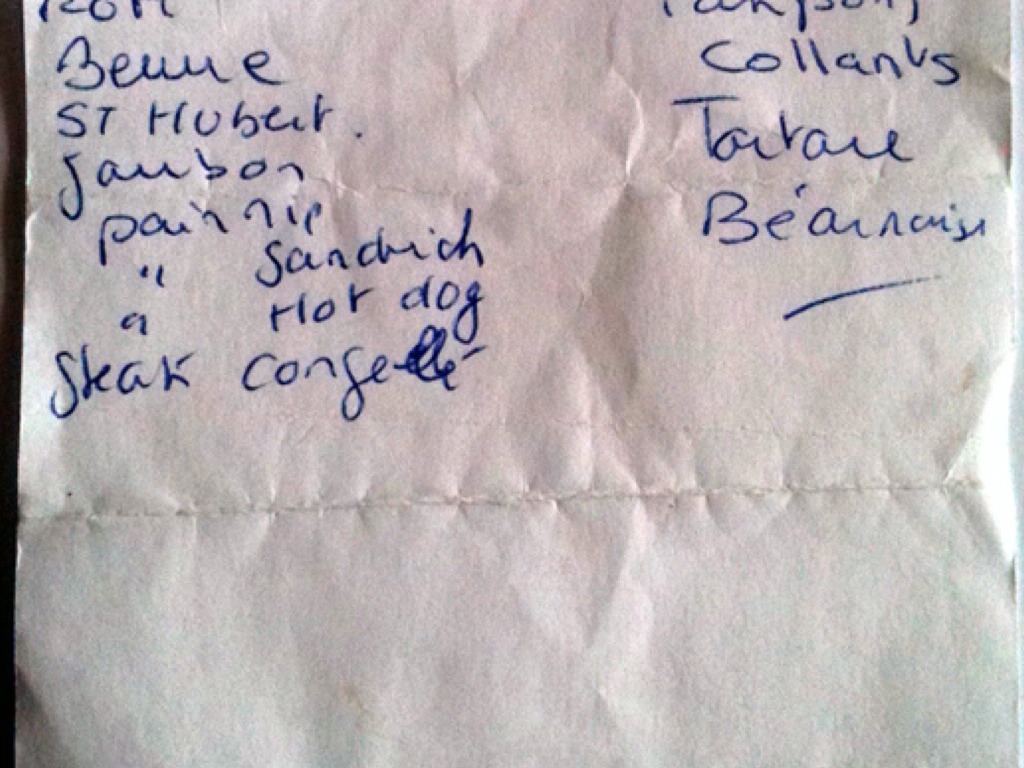 Beurre
ST Hubert.
Jambon
pain mie
" Sandwich
" Hot dog
Steak congelé
Collants
Tartare
Béarnaise